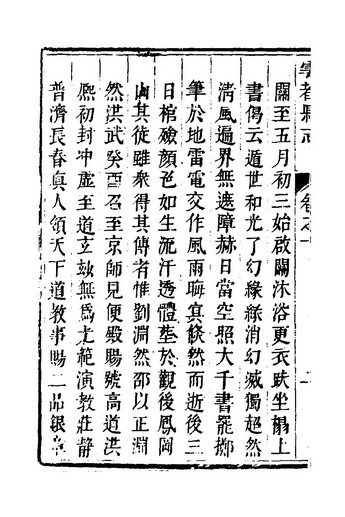 雩都縣志
關至五月初三始啟關沐浴更衣趺坐榻上
書偈云遁世和光了幻緣緣消幻滅獨超然
清風遍界無遮障赫日當空照大千書罷擲
筆於地雷電交作風雨晦冥倐然而逝後三
日棺殮顔色如生流汗透體塟於觀後鳳岡
山其徒雖衆得其傳者惟劉淵然邵以正淵
然洪武癸酉召至京師見便殿賜號高道洪
熈初封冲虛至道玄玅無爲光範演教莊靜
普濟長春眞人領天下道教事賜二品銀章